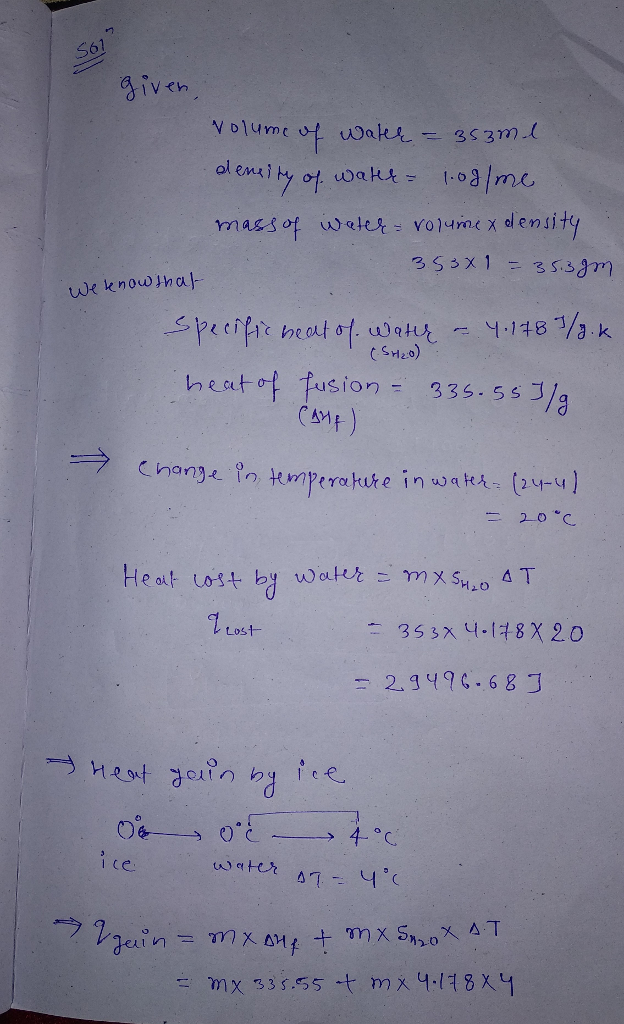 Solⁿ
given,
volume of water = 353ml
density of water = 1.0g/ml
mass of water = volume x density
353x1 = 353gm
we know that
specific heat of water = 4.178 J/g.k
(SH₂O)
heat of fusion = 335.55 J/g
(ΔHf)
⇒ change in temperature in water = (24-4)
= 20°C
Heat lost by water = m x SH₂O ΔT
q lost = 353 x 4.178 x 20
= 29496.68 J
→ Heat gain by ice
0°c → 0°c → 4°c
ice water ΔT = 4°c
→ q gain = m x ΔHf + m x SH₂O x ΔT
= m x 335.55 + m x 4.178 x 4